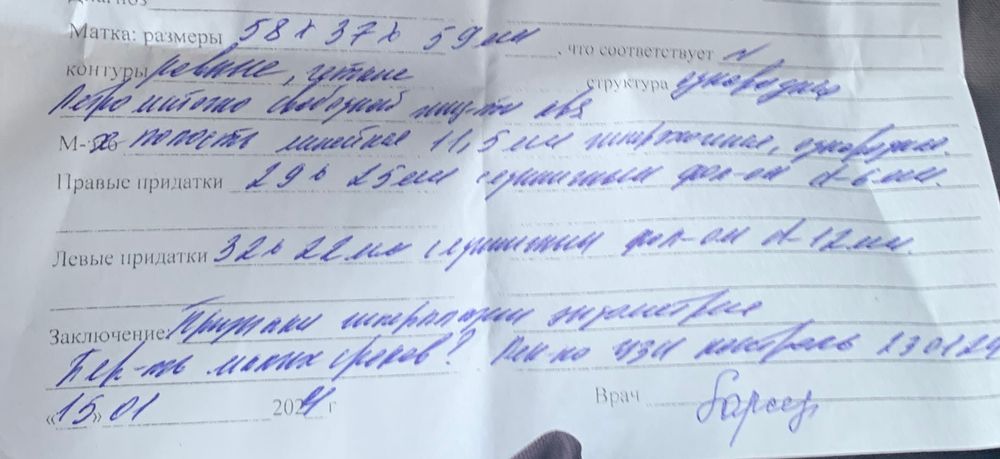 Диагноз
Матка: размеры 58 х 37 х 59 мм, что соответствует N
контуры ровные, четкие структура однородная
Ретро свободной
М-эхо полость линейная 11,5 мм однородная.
Правые придатки 29 х 25 мм с единичным фол-ом d-6 мм.
Левые придатки 32 х 22 мм с единичным фол-ом d-12 мм.
Заключение: Признаки гиперплазии эндометрия
Бер-ть малых сроков? Рек-но УЗИ контроль 23 01 24
«15» 01 2024 г Врач